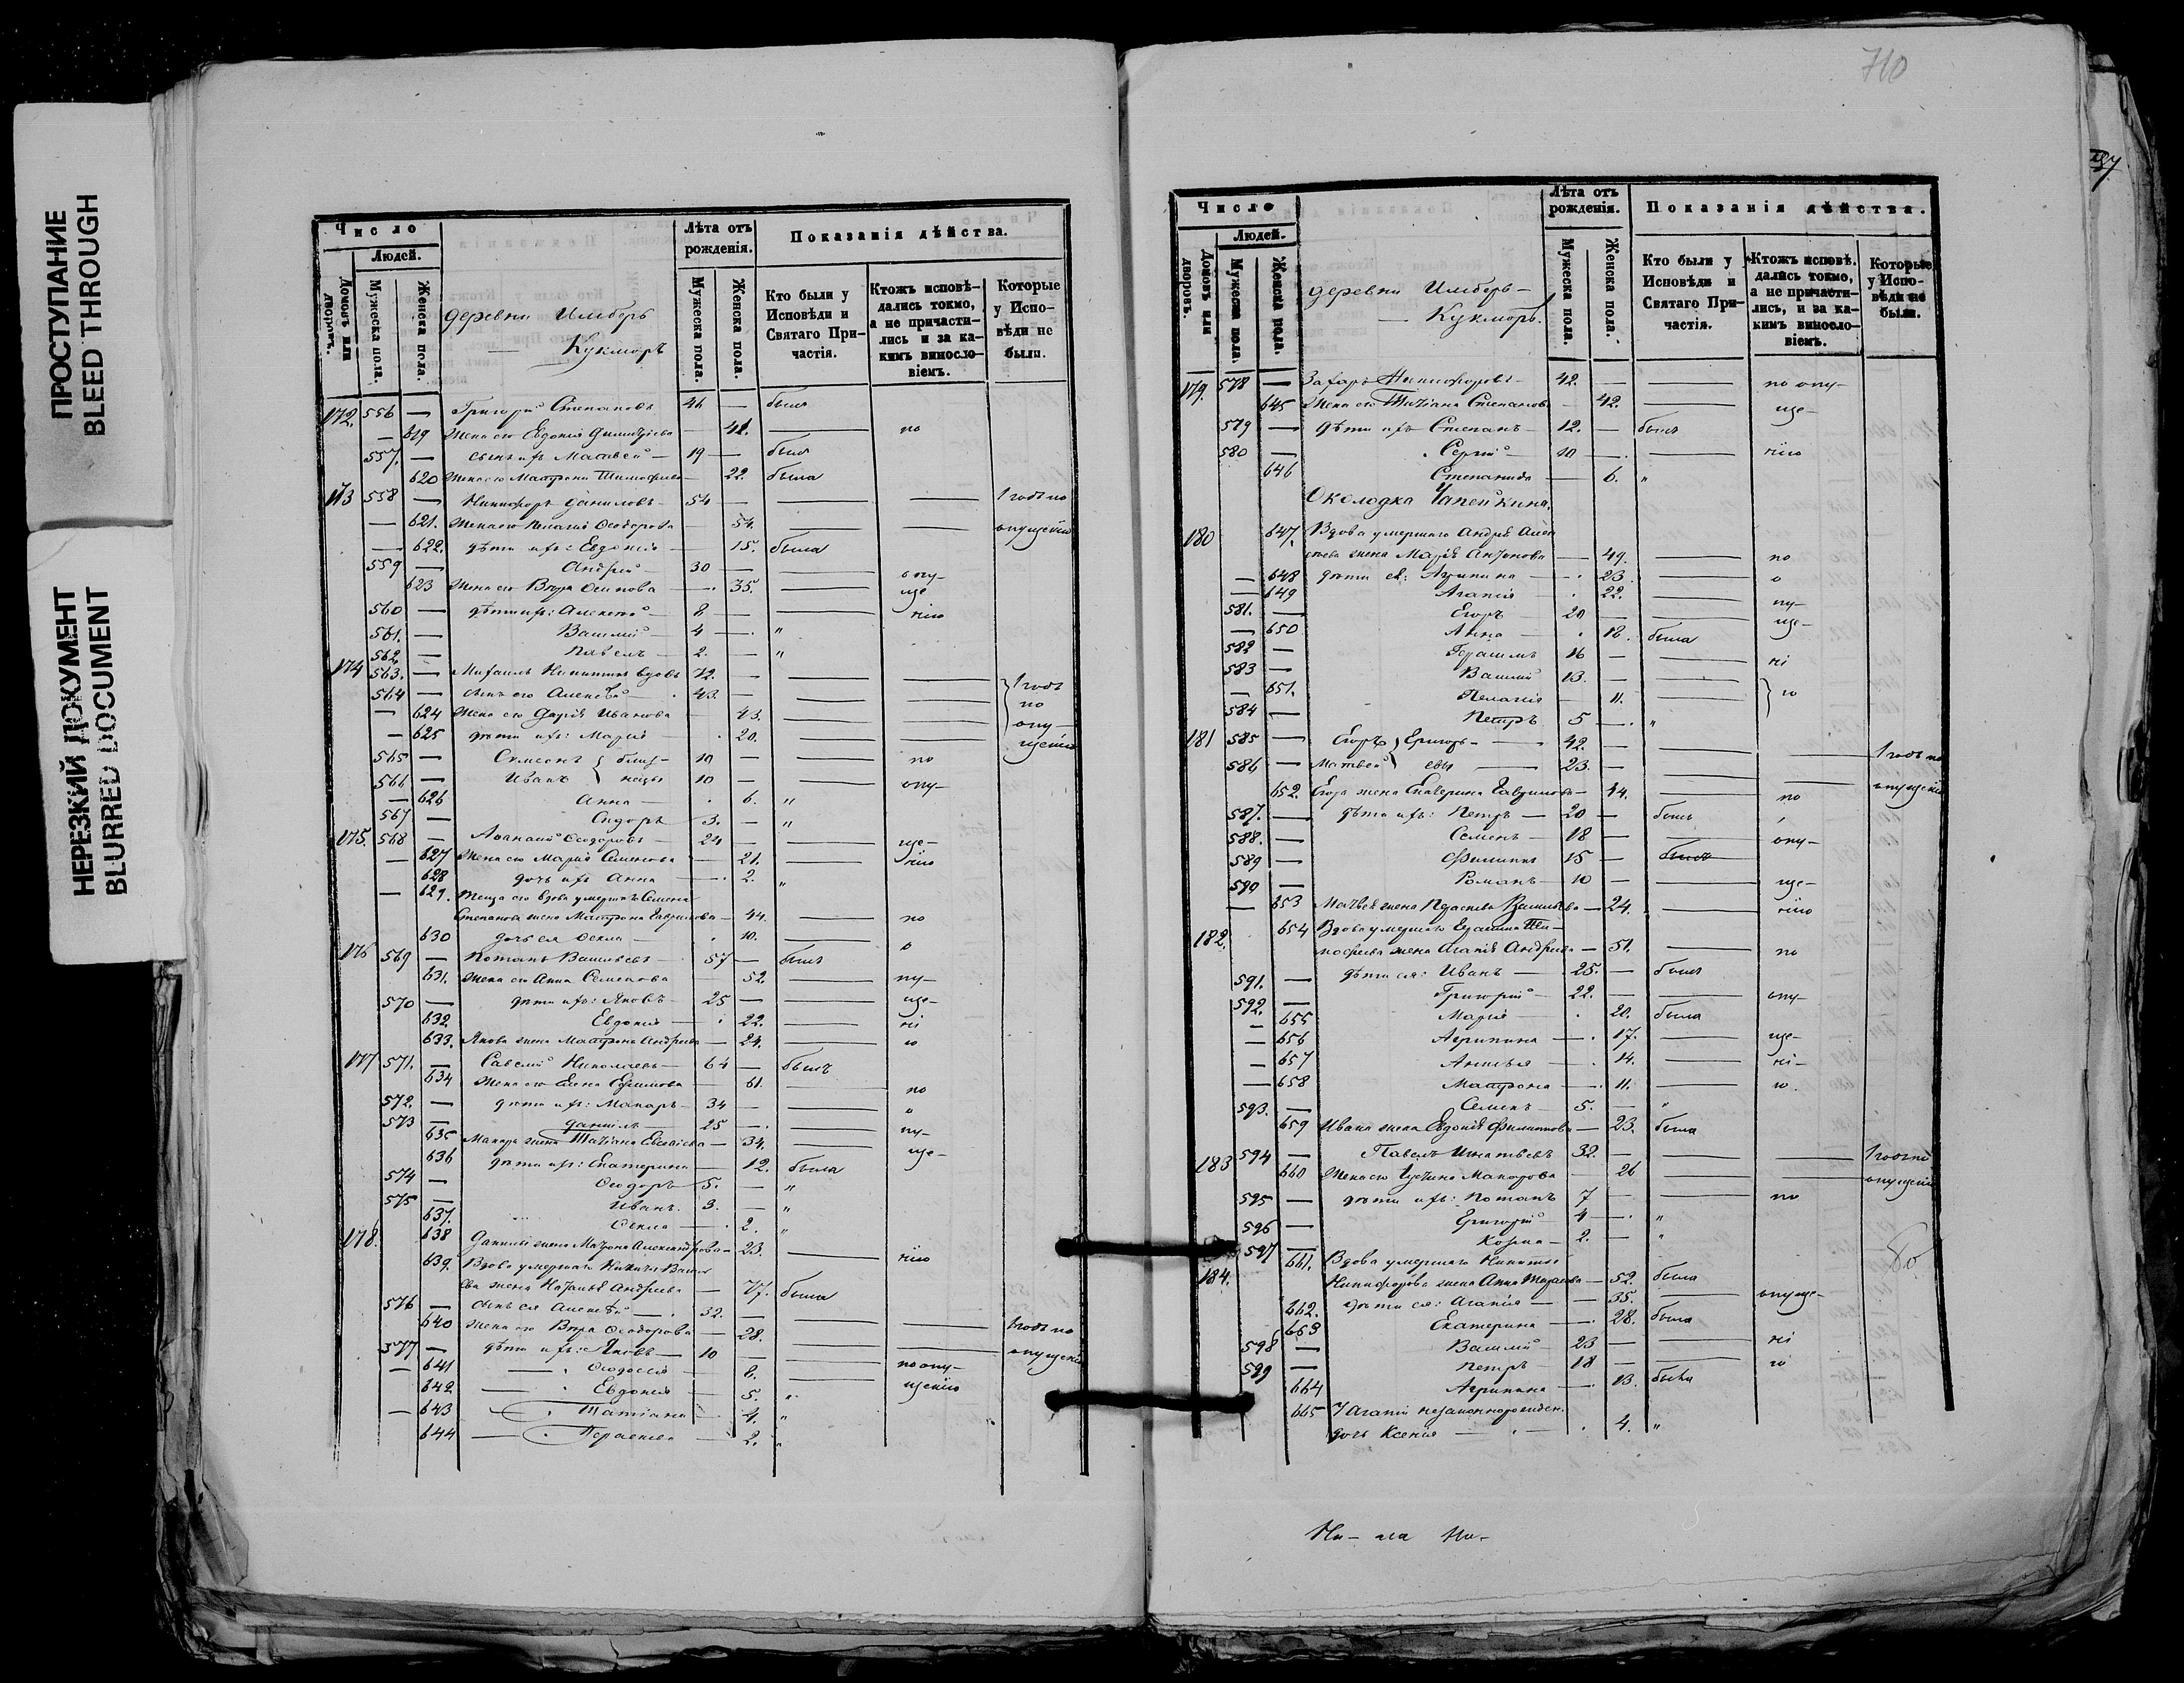 ПРОСТУПАНИЕ
BLEED THROUGH
НЕРЕЗКИЙ ДОКУМЕНТ
BLURRED DOCUMENT
Число
Людей.
Домовъ или дворовъ.
Мужеска пола.
Женска пола.
деревни
Кукморъ
Лѣта отъ рожденія.
Мужеска пола.
Женска пола.
Показанія дѣйства.
Кто были у Исповѣди и Святаго Причастія.
Ктожъ исповѣдались токмо, а не причастились и за какимъ винословіемъ.
Которые у Исповѣди не были.
172. 556 — Григорій Степановъ 46 — былъ
— 619 жена его Евдокія — 41. — по
557. — сынъ ихъ Матвей — 19 — былъ
620 жена его Матрона Тимофеева — 22. была
173 558 — Никифоръ Даниловъ — 54 — 1 годъ по
— 621. жена его Пелагія Ѳеодорова — 54. — опущенію
— 622. дѣти ихъ: Евдокія — 15. была
559 — Андрей — 30 —
623 жена его Вѣра Осипова — 35. — опу-
560 — дѣти ихъ: Алексей — 8 — ще
561. — Василій — 4 — "
562. — Павелъ — 2. — "
174 563. — Михаилъ Никитинъ вдовъ 72. — 1 годъ
564 — сынъ его Алексѣй — 43. — по
— 624 жена его Дарія Иванова — 43. — опу-
— 625 дѣти ихъ: Марія — 20. — щенію
565 — Симеонъ } близ- 10 — по
566 — Иванъ } нецы 10 — опу-
— 626 Анна — 6. "
567 — Сидоръ 3. — "
175. 568 — Ѳеодоровъ — 24 — ще-
— 627 жена его Марія Семенова — 21. — нію
628 дочь ихъ Анна — 2. "
— 629. Теща его вдова умершаго Семена
Степанова жена Матрона Гаврилова — 44. — по
630 дочь ея Ѳекла — 10. — о
176 569 — Потапъ Васильевъ — 57 — былъ
631. жена его Анна Семенова — 52. — пу-
570 — дѣти ихъ: Яковъ — 25 — ще-
632. Евдокія — 22. — ні
633. Якова жена Матрона Андреева — 24. — ю
177 571. — Савелій Николаевъ — 64 — былъ
634 жена его Елена Ефимова — 61. — по
572. — дѣти ихъ: Макаръ — 34 — о
573 — Даніилъ — 25 — пу-
635 Макара жена Татіана — 34. — ще-
636 дѣти ихъ: Екатерина — 12. была
574 — Ѳеодоръ 5. — "
575 — Иванъ. 3. — "
637. Ѳекла — 2. "
178. 638 Даніила жена Матрона Александрова — 23. — нію
639. Вдова умершаго Никиты Василь
ева жена Наталья Андреева — 77. была
576 — сынъ ея Алексѣй — 32. —
640 жена его Вѣра Ѳеодорова — 28. — 1 годъ по
577 — дѣти ихъ: Яковъ — 10 — опущенію
— 641 Ѳеодосія — 8. — по опу-
642. Евдокія — 5. " щенію
— 643 Татіана — 4. "
644 Параскева — 2. "
710
Число
Людей.
Домовъ или дворовъ.
Мужеска пола.
Женска пола.
деревни
Кукморъ.
Лѣта отъ рожденія.
Мужеска пола.
Женска пола.
Показанія дѣйства.
Кто были у Исповѣди и Святаго Причастія.
Ктожъ исповѣдались токмо, а не причастились, и за какимъ винословіемъ.
Которые у Исповѣди не были.
179. 578 — Захаръ Никифоровъ — 42. — по опу-
645 жена его Татіана Степанова — 42. — ще-
579 — дѣти ихъ Степанъ — 12. — былъ
580 — Сергій — 10 — нію
646 Степанида — 6. "
Околодка Чапейкина.
180 647. Вдова умершаго Андрея Алек
сеева жена Марія Антонова — 49. — по
— 648 дѣти ея: — 23. — о
— 649 Агапія — 22. —
581. — Егоръ — 20 — пу-
— 650 Анна — 18. была ще-
582 — Герасимъ 16 —
583 — Василій 13. — ні
— 651. Пелагія 11. — ю
584 — Петръ 5 — "
181 585 — Егоръ } Григорь- 42. — 1 годъ по
586 — Матвей } евы — 23. — опущенію
652. Егора жена Екатерина Гаврилова — 44. — по
587. — дѣти ихъ: Петръ — 20 — былъ
588. — Семенъ — 18 — опу-
589 — Филиппъ 15 — былъ
590 — Романъ — 10 — ще-
— 653 Матвея жена Параскева Васильева — 24. — нію
182. 654 Вдова умершаго Ти-
мофеева жена Агапія Андреева — 51. — по
591. — дѣти ея: Иванъ — 25. — былъ
592. — Григорій — 22. — опу-
— 655 Марія — 20. была
— 656 Агрипина — 17. — ще-
— 657 Анисья — 14. — ні-
— 658 Матрона — 11. — ю.
593. — Семенъ — 5. — "
659 Ивана жена Евдокія Филиппова — 23. была
183 594 — Павелъ Игнатьевъ 32. — 1 годъ по
660 жена его Макарова — 26 — опущенію
595 — дѣти ихъ: Потапъ 7 — по
596 — Григорій — 4 — "
597 — Козма — 2. — "
184. 661. Вдова умершаго Никиты
Никифорова жена Анна — 52. была
662. дѣти ея: Агапія — 35. — опуще-
663 Екатерина — 28. была
598 — Василій — 23 — ні
599 — Петръ — 18 — ю
664 Агрипина — 13. была
665 У Агапіи незаконнорожден.
дочь Ксенія — 4. "